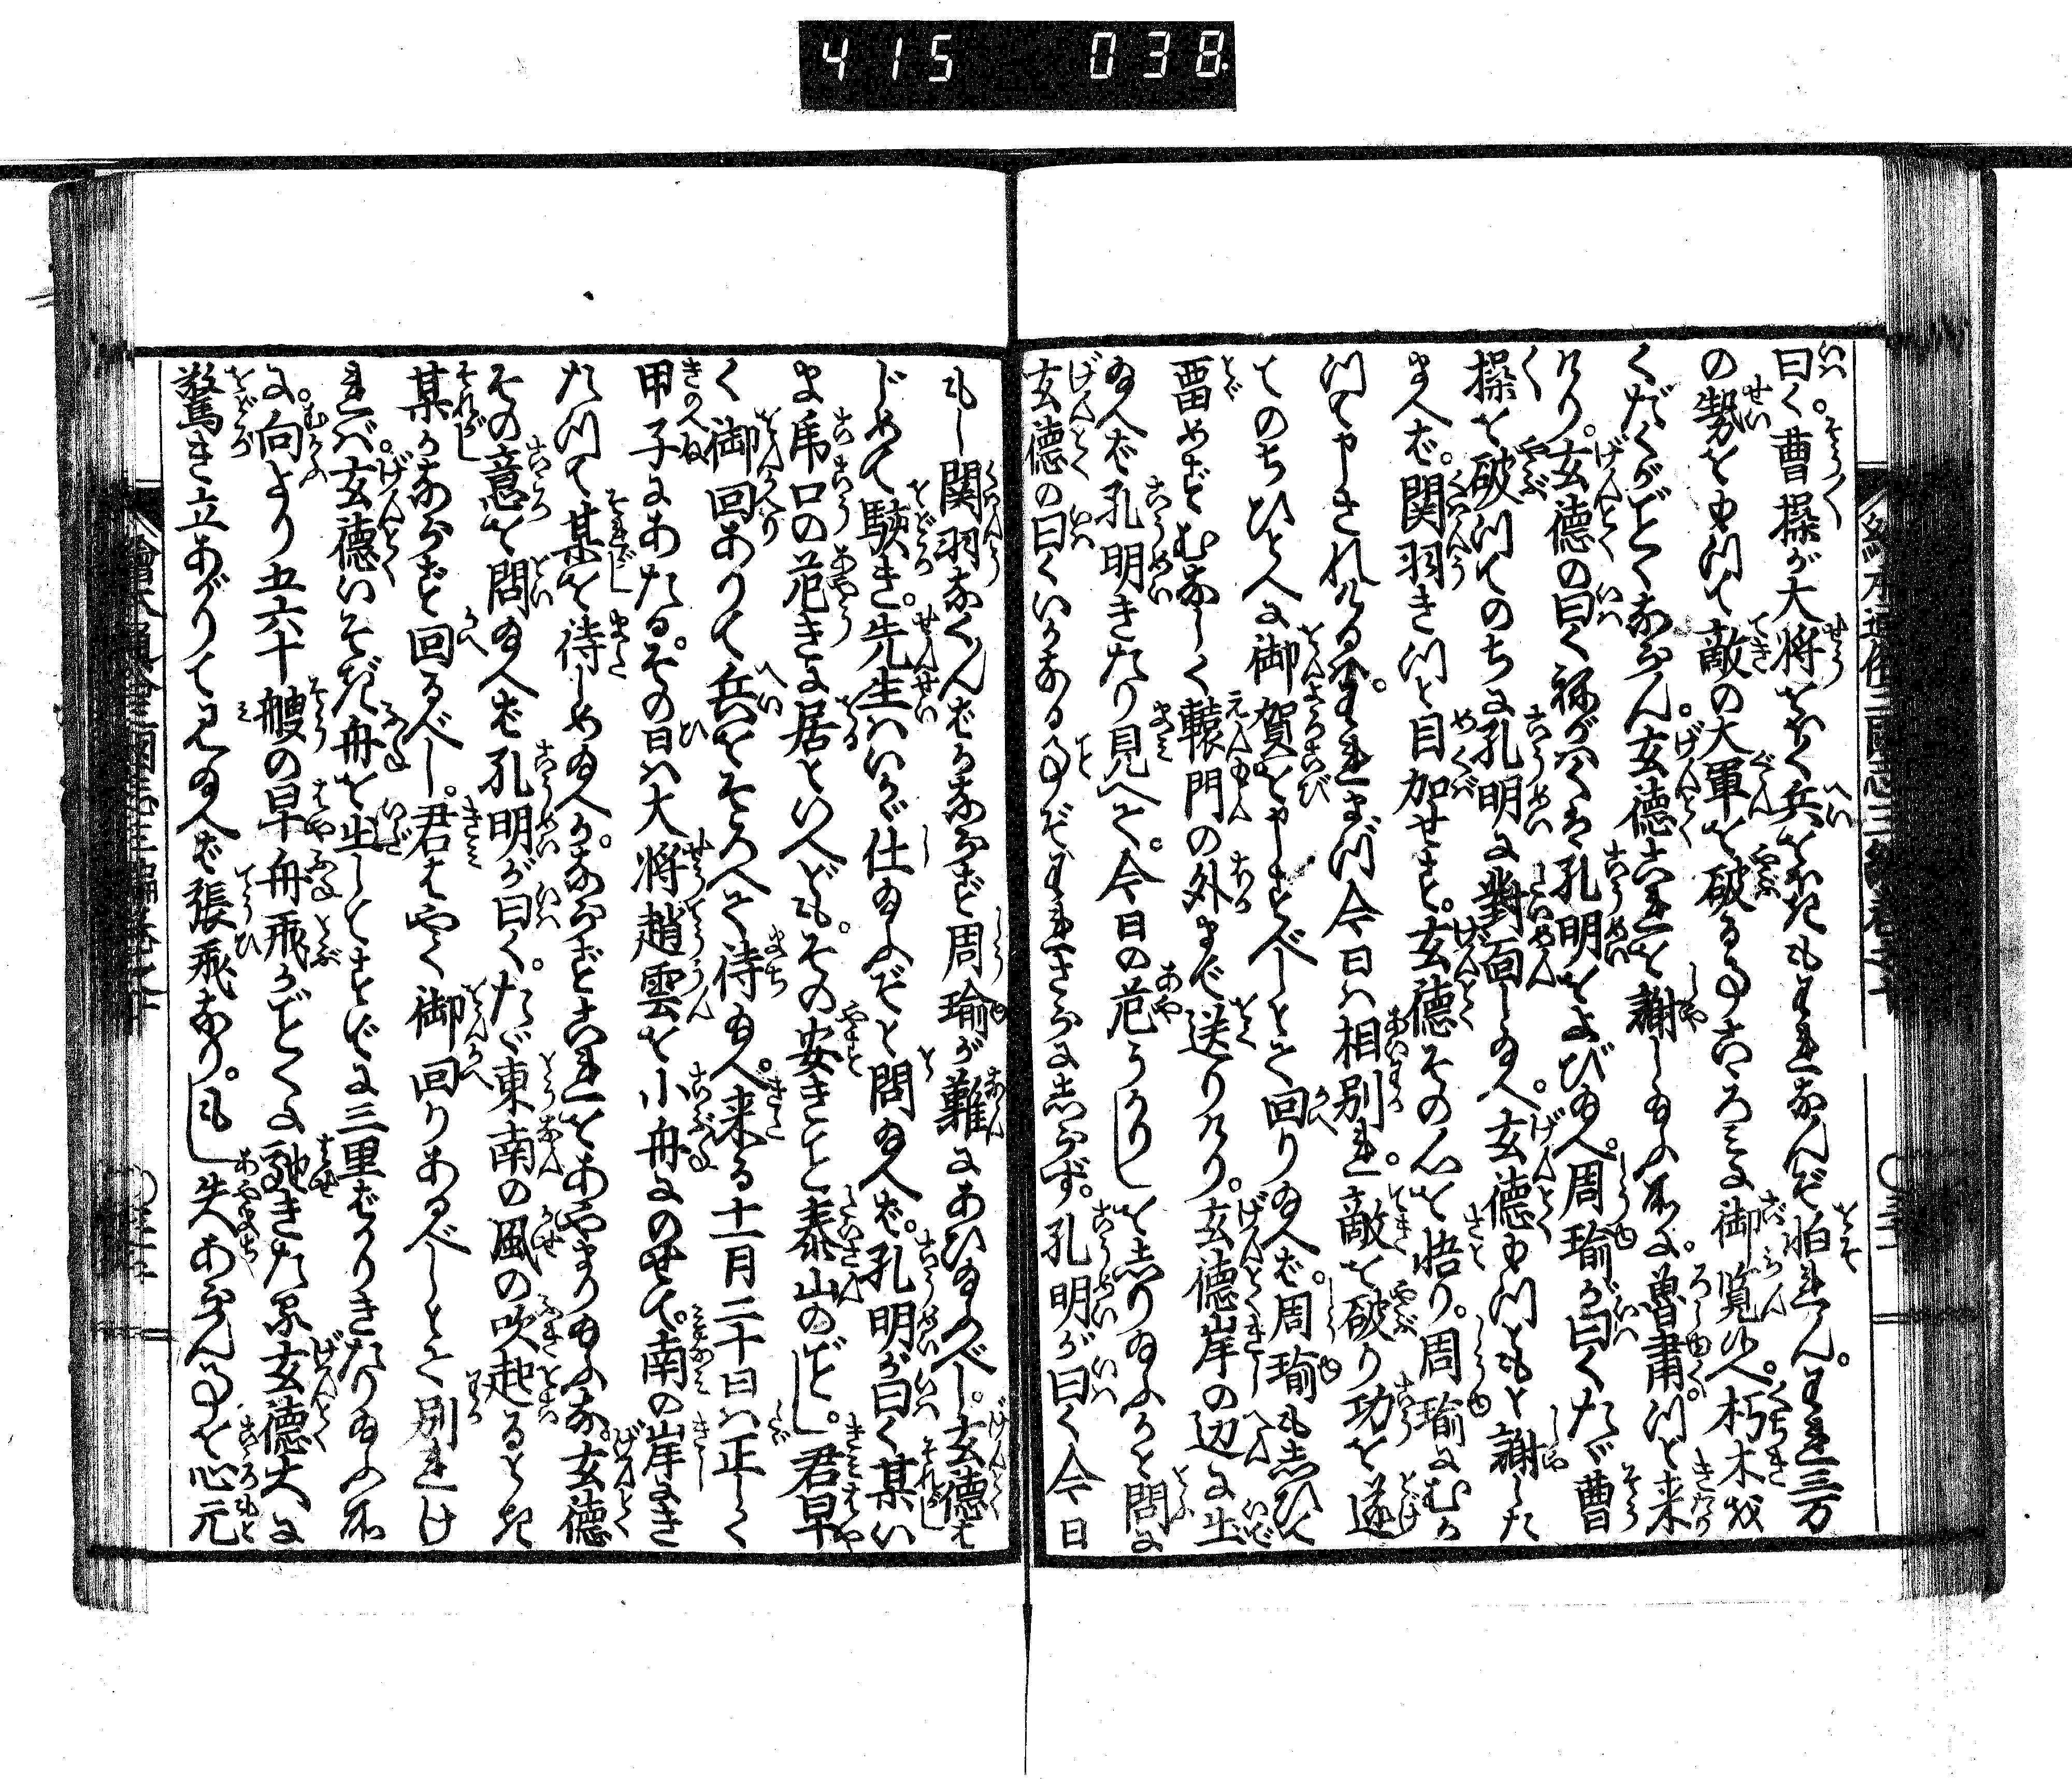 415 038
曰く。曹操が大将をほく兵をほきもわれなんぞ怕れん。われ三万
の勢をゆつて敵の大軍を破る事こゝろみに御覧候へ。朽木を
くだくがごとくならん。玄徳これを謝し給ふ所に。魯粛つと来
けり。玄徳の曰くねがはくは孔明をよび給へ。周瑜が曰くたゞ曹
操を破つてのちに孔明に対面し給へ。玄徳ゆつともと謝した
まへば。関羽きつと目加せす。玄徳その心を悟り。周瑜にむか
つて申されけるは。われまづ今日は相別れ。敵を破り功を遂
てのちひとへに御賀を申すべしとて回り給へば。周瑜も志ひて
畱めずむなしく轅門の外まで送りけり。玄徳岸の辺に出
給へば孔明きたり見へて。今日の危うかりしを志り給ふかと問に
玄徳の曰くいかなる事ぞわれさらに志らず。孔明が曰く今日
もし関羽なくんばかならず周瑜が難にあひ給ふべし。玄徳は
じめて駭き。先生はいかゞ仕給ふぞと問給へば。孔明が曰く某い
ま虎口の危きに居といへども。その安きこと泰山のごとし。君早
く御回ありて兵をそろへて待給へ。来る十一月二十日は正しく
甲子にあたる。その日は大将趙雲を小舟にのせて。南の岸にき
たつて某を待しめ給へ。かならずこれをあやまり給ふな。玄徳
その意を問給へば孔明が曰く。たゞ東南の風の吹起るとき
某かならず回るべし。君はやく御回りあるべしとて別れけ
れば。玄徳いそぎ舟を出してすでに三里ばかりきたり給ふ所
に。向より五六十艘の早舟飛がごとくに馳きたる玄徳大に
驚き立あがりて見給へば張飛なり。もし失あらん事を心元